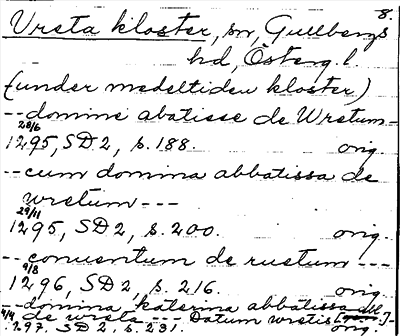 8.
Vreta kloster, sn, Gullbergs
hd, Österg. l.
(under medeltiden kloster)
-- domine abatisse de Wretum -
28/6
1295, SD 2, s. 188. orig.
-- cum domina abbatissa de
wretum ---
29/11
1295, SD 2, s. 200. orig.
-- conuentum de rretum ---
9/8
1296, SD 2, s. 216. orig.
-- domina katerina abbatissa
de wreta --- Datum wretis -
1297. SD 2, s. 231. orig.